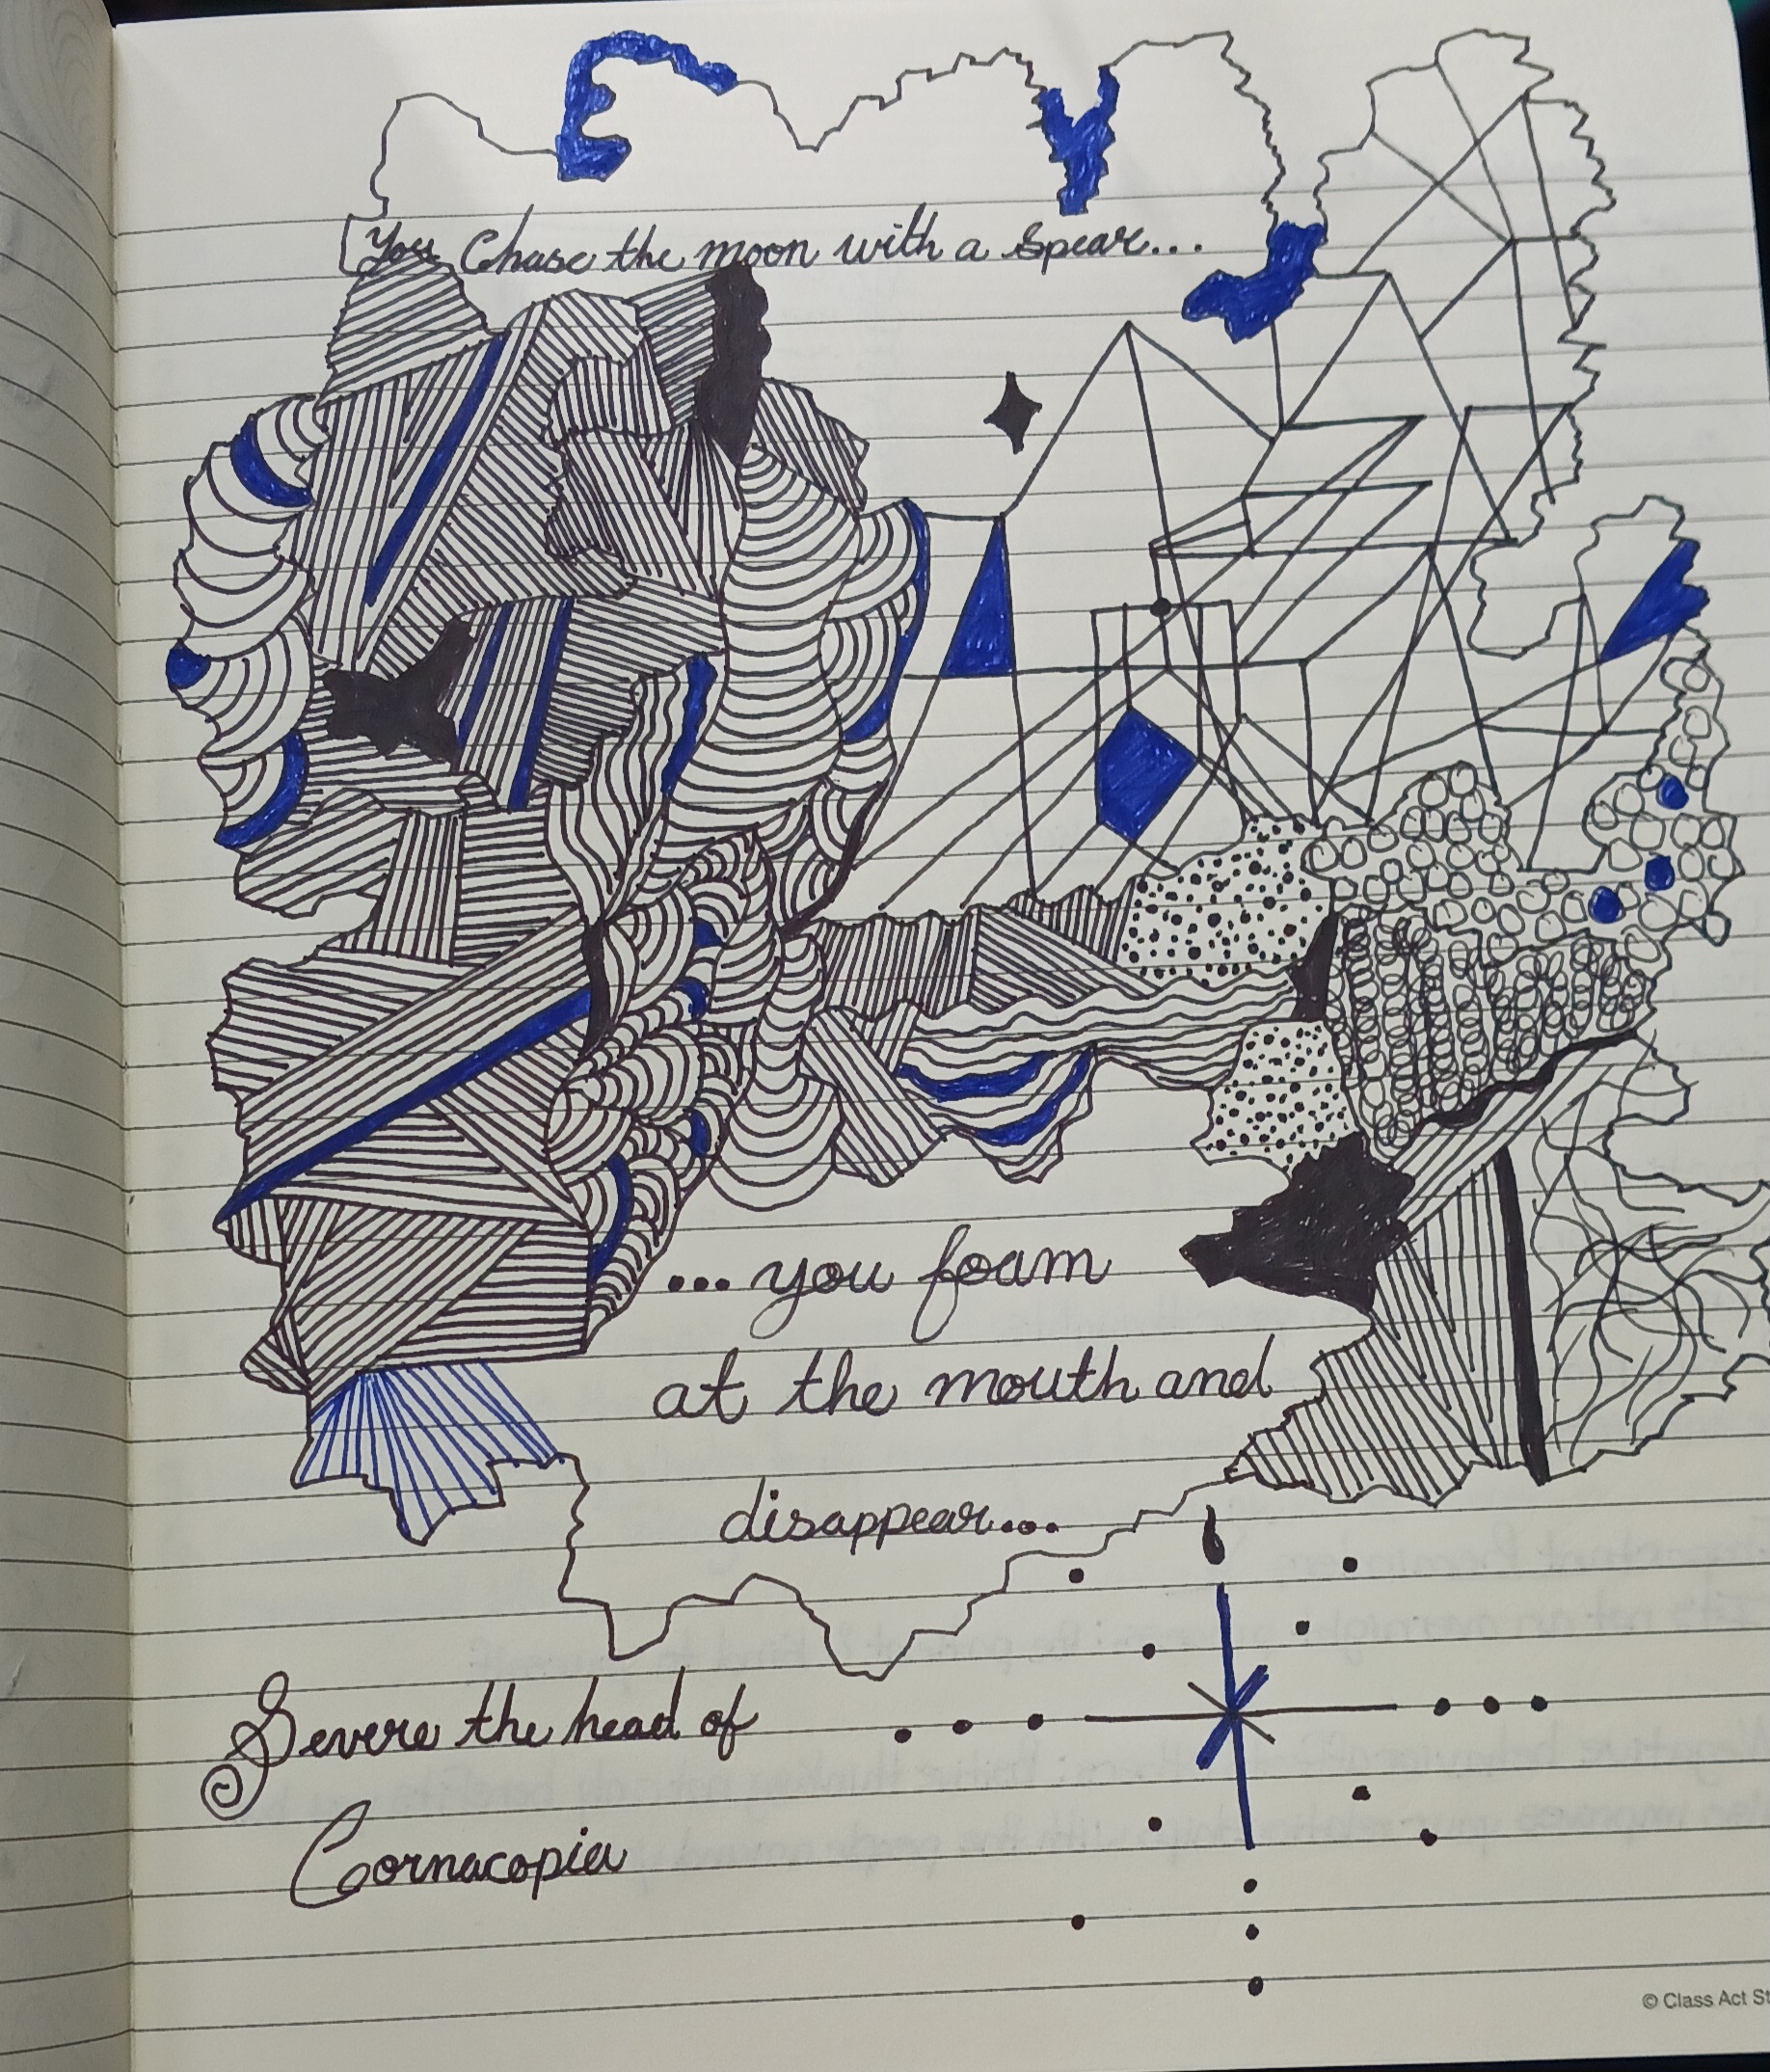 You Chase the moon with a spear...
... you foam
at the mouth and
disappear....
Severe the head of
Cornacopia
© Class Act St